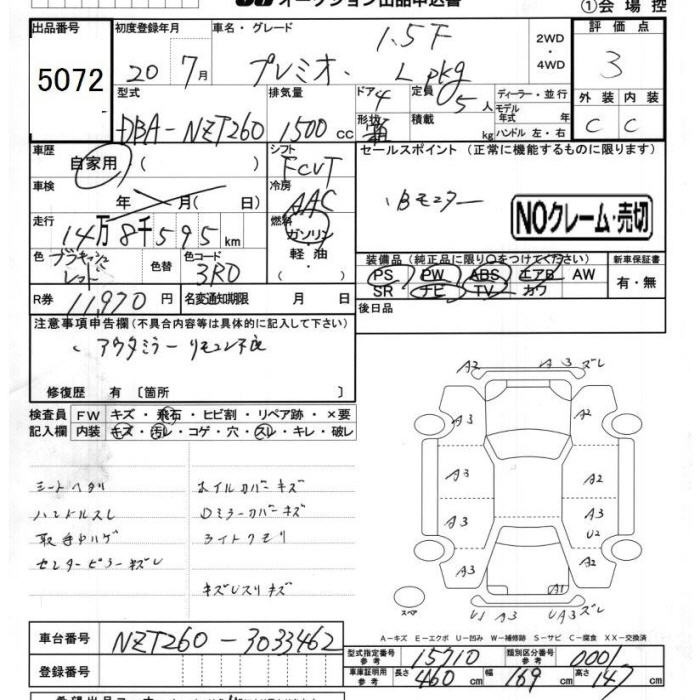 オークション出品申込書
①会場控
出品番号
5072
初度登録年月
20 7月
車名・グレード
プレミオ
1.5F
L pkg
2WD
・
4WD
評価点
3
外装 内装
C C
型式
DBA-NZT260
排気量
1500cc
ドア 4
形状 箱
定員 5人
積載 kg
ディーラー・並行
モデル年式 年
ハンドル 左・右
車歴
自家用 ( )
車検
年 月( 日)
走行
14万8千595km
色
色替
色コード
3R0
R券
11,970円
名変通知期限 月 日
シフト
FCVT
冷房
AAC
燃料
ガソリン
軽油
( )
セールスポイント (正常に機能するものに限ります)
Bモニター
NOクレーム・売切
装備品 (純正品に限り○をつけてください)
PS PW ABS エアB AW
SR ナビ TV カワ
新車保証書
有・無
後日品
注意事項申告欄(不具合内容等は具体的に記入して下さい)
アウタミラーリモコン不良
修復歴 有 〔箇所 〕
検査員記入欄
FW キズ・飛石・ヒビ割・リペア跡・×要
内装 キズ・汚レ・コゲ・穴・スレ・キレ・破レ
シートヘタリ
ハンドルスレ
取手中ハゲ
センターピラーキズレ
ホイルカバーキズ
Dミラーカバーキズ
ライトクモリ
キズレスリキズ
A2 A3 ズレ
A3 A2
A3 A2
A3 A3
U2
A3 A2
A1
スペア
U1 A3 UA3 ズレ
A-キズ E-エクボ U-凹み W-補修跡 S-サビ C-腐食 XX-交換済
車台番号
NZT260-3033462
登録番号
型式指定番号 参考
15710
類別区分番号 参考
0001
車庫証明用 参考
長さ 460cm 幅 169cm 高さ 147cm